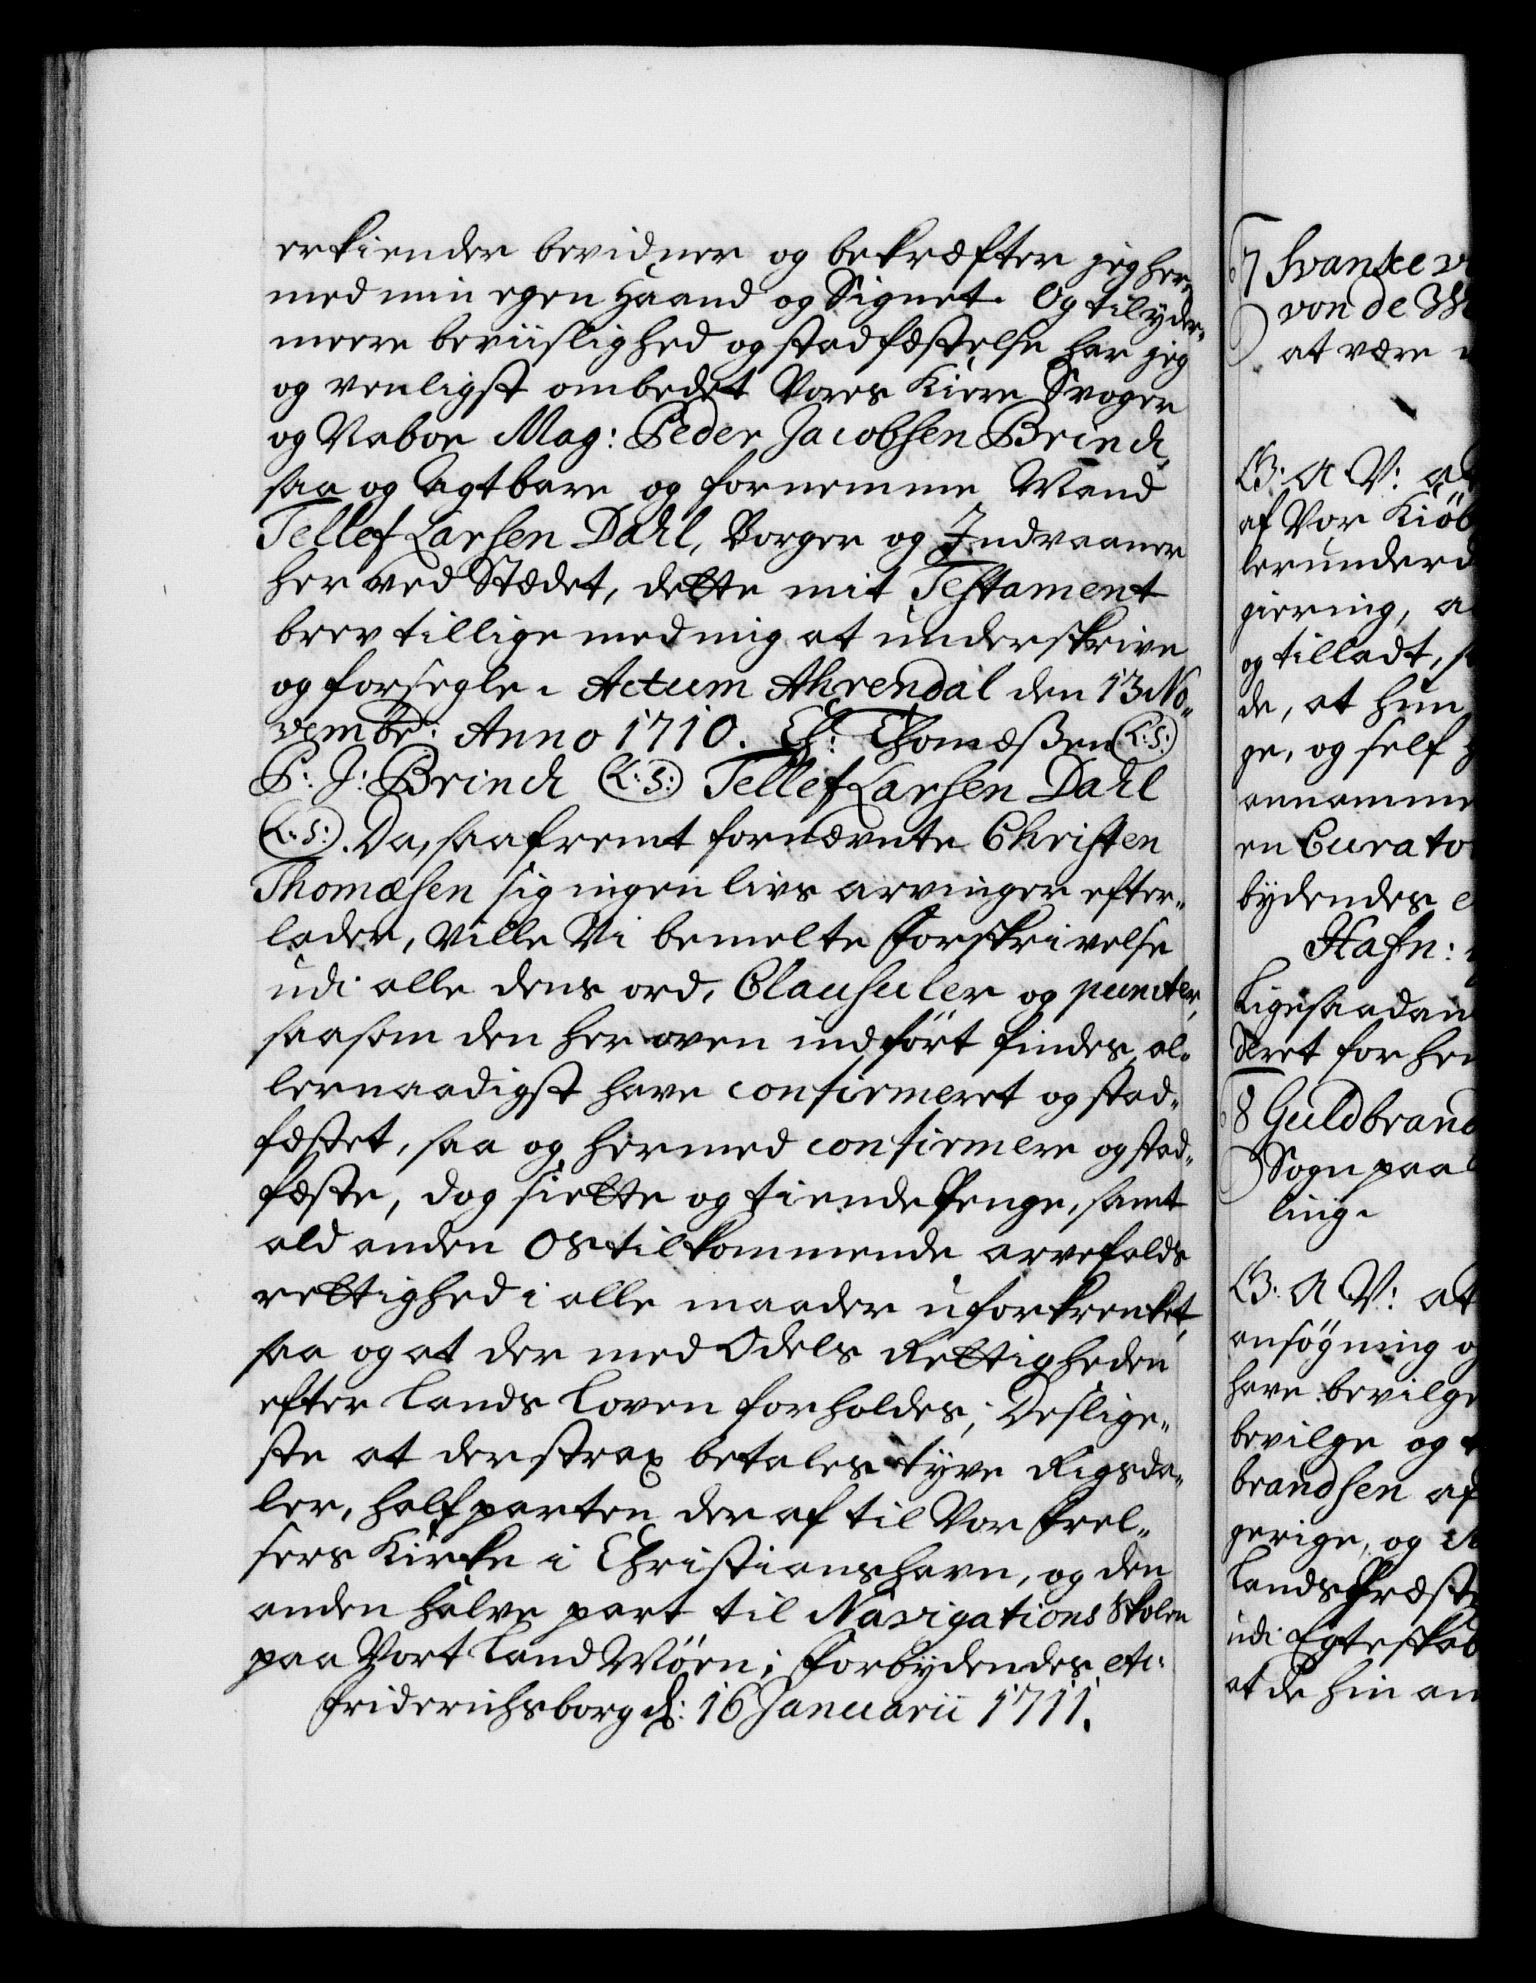 erkiender bevidner og bekræfter jeg her„
med min egen Haand og Signet. Og til yder„
meere beviislighed og stadfæstelse har jeg
og venligst ombedet Vores Kiere Svoger
og Naboe Mag: Peder Jacobsen Brinch,
saa og Agtbare og fornemme Mand
Tellef Larsen Dahl, Borger og Indvaaner
her ved Stædet, dette mit Testament
brev tillige med mig at underskrive
og forsegle. Actum Ahrendal den 13 No„
vembr: Anno 1710. Ch: Thomæßen (L:S:)
P: J: Brinch (L:S:) Tellef Larsen Dahl
(L:S:). Da, saafremt fornævnte Christen
Thomæsen sig ingen livs arvinger efter„
lader, Ville Vi bemelte Forskrivelse
udi alle dens ord, Clausuler og puncter,
saasom den her oven indført findes, al„
lernaadigst have confirmeret og stad„
fæstet, saa og hermed confirmere og stad„
fæste, dog siette og tiende Penge, samt
ald anden Os tilkommende arvefalds
rettighed i alle maader uforkrenket,
saa og at der med Odels Rettigheden
efter Lands Loven forholdes; Deslige„
ste at der strax betales tyve Rigsda„
ler, halfparten deraf til Vor Frel„
sers Kirke i Christianshavn, og den
anden halve part til Navigations Skolen
paa Vort Land Møen; Forbydendes etc:
Friderichsborg d: 16 Januarii 1711.
67 Svanke
von de
at være
G: A V: at
af Vor Kiøb
lerunderd
giering,
og tilladt,
de, at hun
ge, og self
annamme
en Curator
bydendes
Hafn:
Ligesaadan
deret for hen
68 Guldbrand
Sogn paa
ling.
G: A V: at
ansøgning og
have bevilge
bevilge og
brandsen af
gerige, og
Lands Præste
udi Egteskab
at de hin an